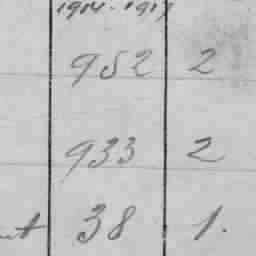 1914-1917
952 2
933 2
38 1.